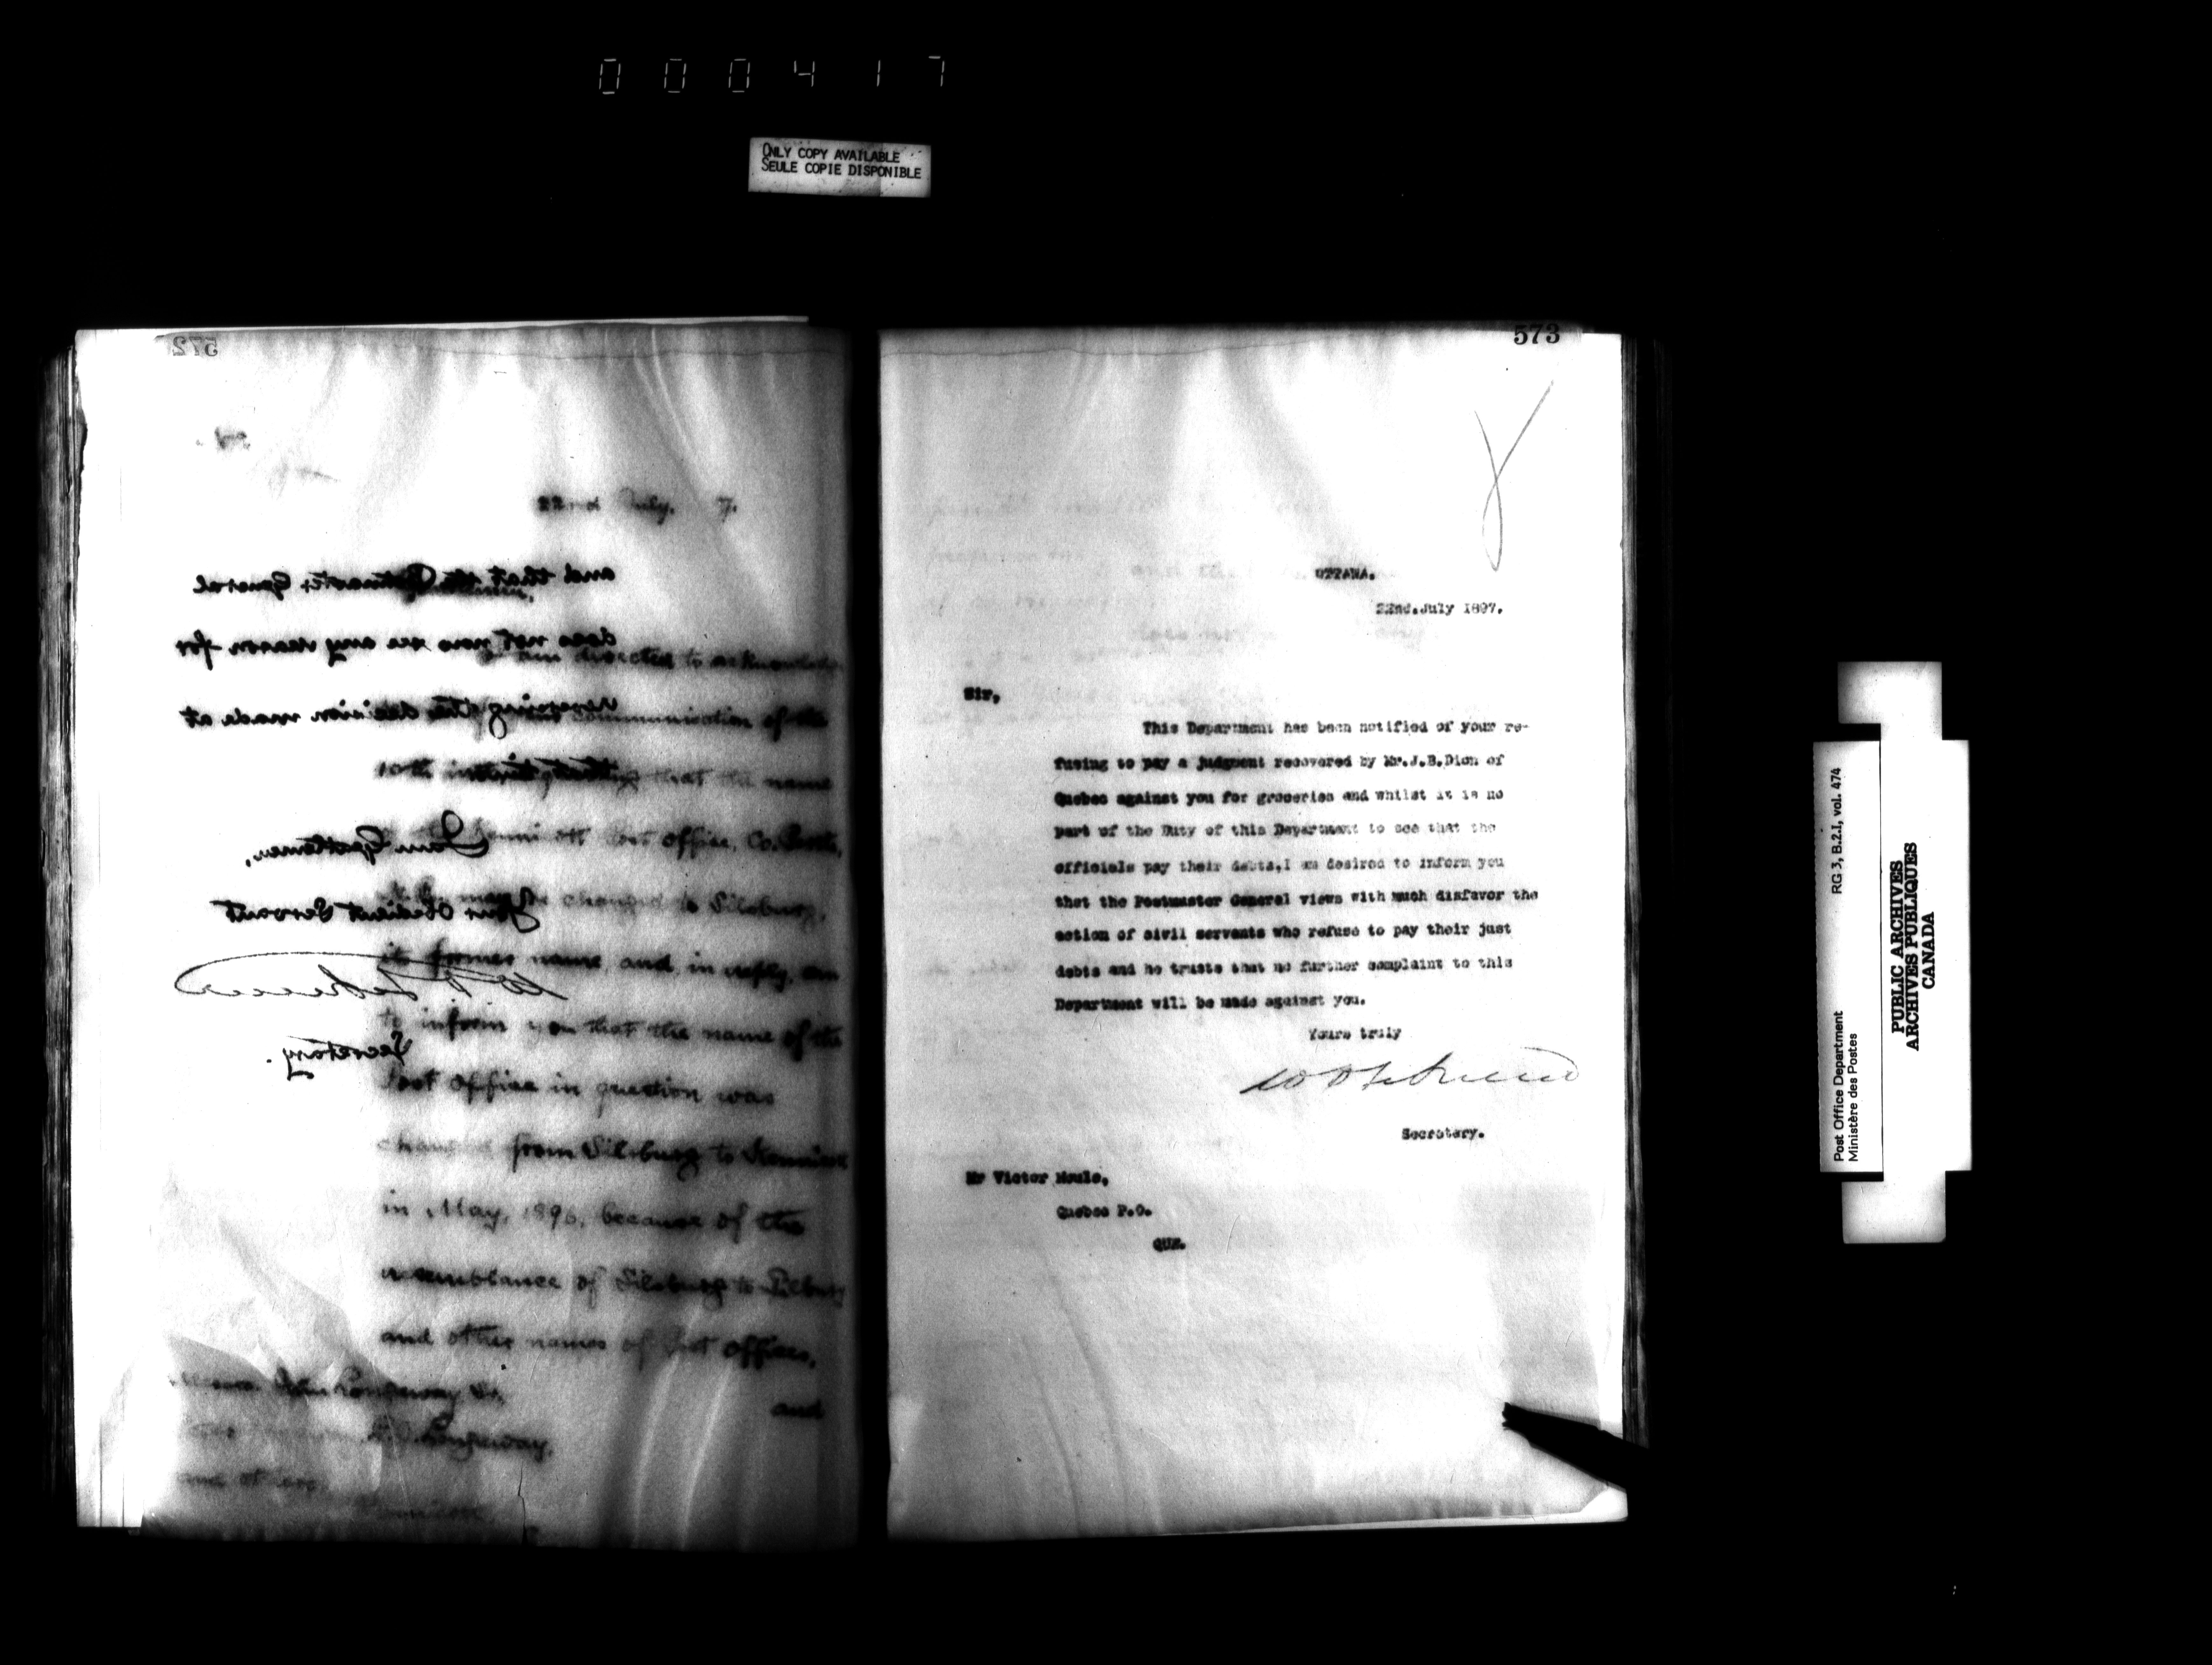 000417
ONLY COPY AVAILABLE
SEULE COPIE DISPONIBLE
572
22nd July, 7.
Gentlemen,
I am directed to acknowledge
communication of the
10th that the name
Post Office, Co.
may be changed to Silsburg,
its former name, and, in reply, am
to inform you that the name of the
Post Office in question was
changed from Silsburg to
in May, 1896, because of the
resemblance of Silsburg to
and other names of Post Offices,
and
and others,
and that the Postmaster General
does not now see any reason for
reversing the decision made at
that time.
I am, Gentlemen,
Your Obedient Servant
Secretary.
573
OTTAWA.
22nd.July 1897.
Sir,
This Department has been notified of your re-
fusing to pay a judgment recovered by Mr.J.B.Dion of
Quebec against you for groceries and whilst it is no
part of the Duty of this Department to see that the
officials pay their debts,I am desired to inform you
that the Postmaster General views with much disfavor the
action of civil servants who refuse to pay their just
debts and he trusts that no further complaint to this
Department will be made against you.
Yours truly
Secretary.
Mr Victor
Quebec P.O.
QUE.
Post Office Department
Ministère des Postes
RG 3, B.2.I, vol. 474
PUBLIC ARCHIVES
ARCHIVES PUBLIQUES
CANADA